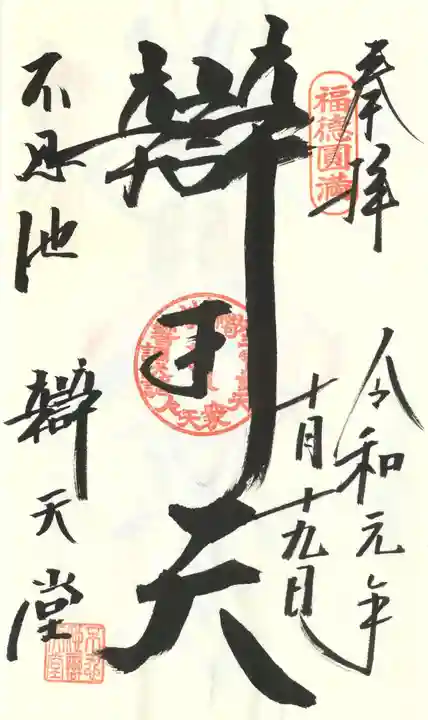 奉拝
福徳圓満
令和元年
十月十九日
辯才天
不忍池
辯天堂